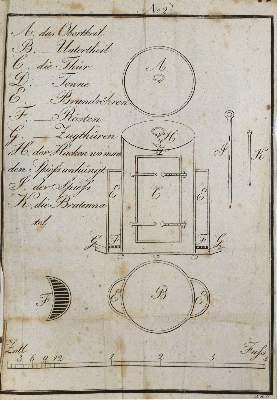 No. 2
A. das Obertheil
B. — Untertheil
C. die Thür
D. — Tonne
E. — Brandröhren
F. — Rösten
G. — Zugthüren
H. der Hacken wo man
den Spieß anhängt
J. der Spieß
K. die Bratenna
del
A
H
J
K
E
C
E
F
F
G
G
F
B
Zoll
Fuß
3 6 9 12
1
2
3